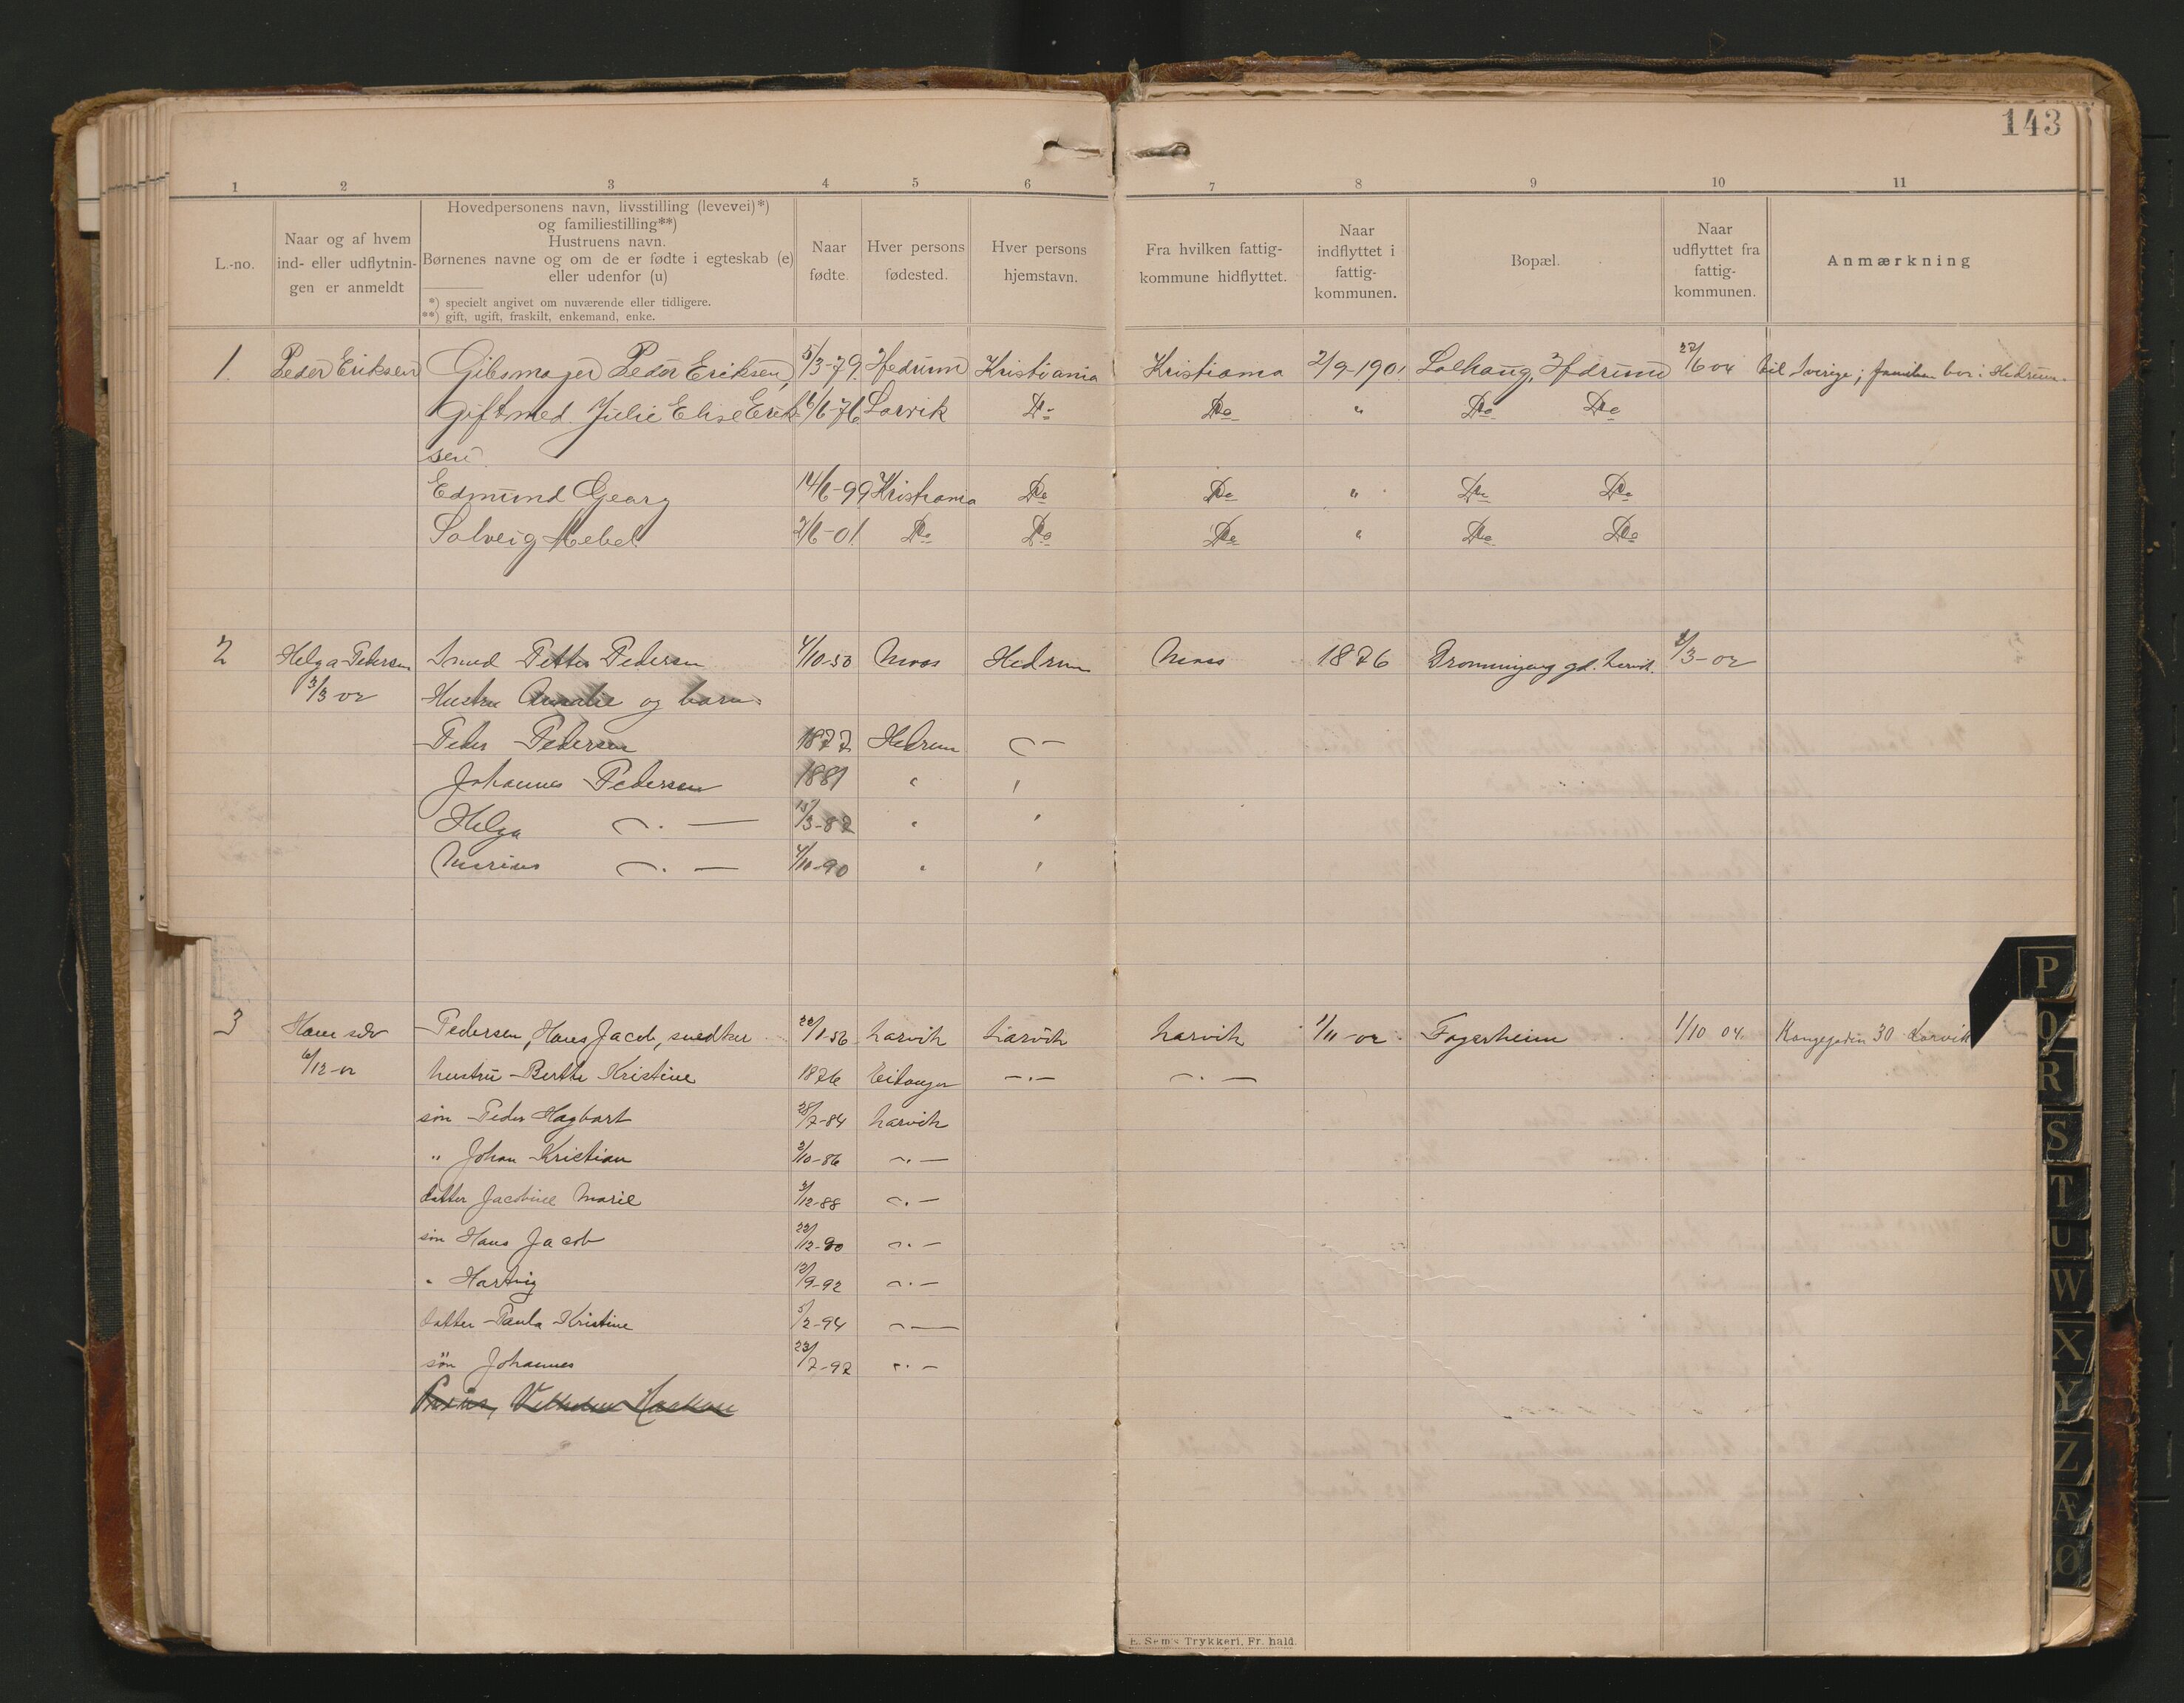 143
1 2 3 4 5 6 7 8 9 10 11
L.-no.
Naar og af hvem
ind- eller udflytnin-
gen er anmeldt
Hovedpersonens navn, livsstilling (levevei)*)
og familiestilling**)
Hustruens navn.
Børnenes navne og om de er fødte i egteskab (e)
eller udenfor (u)
*) specielt angivet om nuværende eller tidligere.
**) gift, ugift, fraskilt, enkemand, enke.
Naar
fødte.
Hver persons
fødested.
Hver persons
hjemstavn.
Fra hvilken fattig-
kommune hidflyttet.
Naar
indflyttet i
fattig-
kommunen.
Bopæl.
Naar
udflyttet fra
fattig-
kommunen.
Anmærkning
1. Peder Eriksen Gibsmager Peder Eriksen, 5/3-79. Hedrum Kristiania Kristiania 2/9-1901. Solhaug, Hedrum 27/6 04 til Sverige; familien bor i Hedrum.
Gift med Julie Elise Erik- 6/6-76 Larvik Do Do " Do Do
sen
Edmund Georg 14/6-99 Kristiania Do Do " Do Do
Solveig Mebel 2/6-01. Do Do Do " Do Do
2 Helga Pedersen Smed Petter Pedersen 4/10-50 Moss Hedrum Moss 1876 Dronningeng gd. Larvik. /3-02
3/3 02 Hustru Amalie og barn
Peder Pedersen 1877 Hedrum
Johannes Pedersen 1881 " "
Helga — . — 15/3-82 " "
Marius — . — 4/10-90 " "
3 Han selv Pedersen, Hans Jacob, snedker 22/1-56 Larvik Larvik Larvik 1/11-02 Fagerheim 1/10 04. Kongegaden 30 Larvik
6/12-02 hustru Berthe Kristine 1876 Eidanger — . — — . —
søn Peder Hagbart 28/7-84 Larvik
" Johan Kristian 2/10-86 — . —
datter Jacobine Marie 3/12-88 — . —
søn Hans Jacob 22/12-90 — . —
" Hartvig 12/9-92 — . —
datter Paula Kristine 5/2-94 — . —
søn Johannes 23/7-97 — . —
P
Q
R
S
T
U
W
X
Y
Z
Æ
Ø
E. Sem's Trykkeri, Fr. hald.